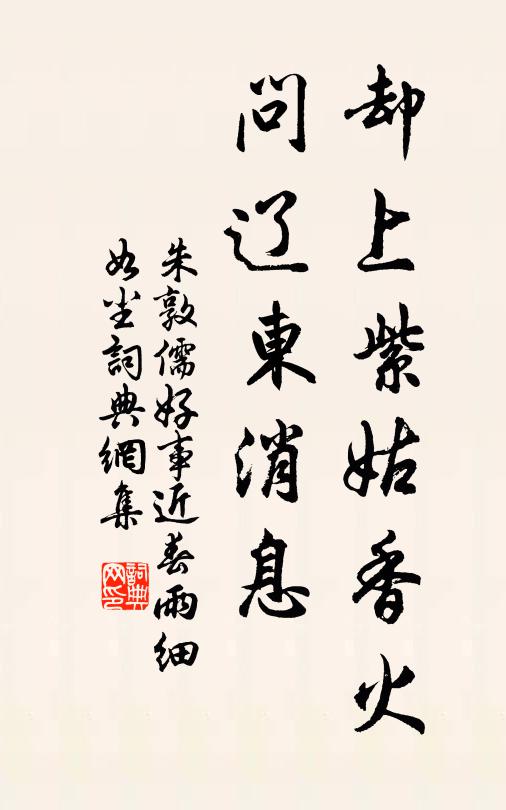 却上紫姑香火
问辽東消息
朱敦儒好事近春雨细
如尘詞典網集
詞典
网印